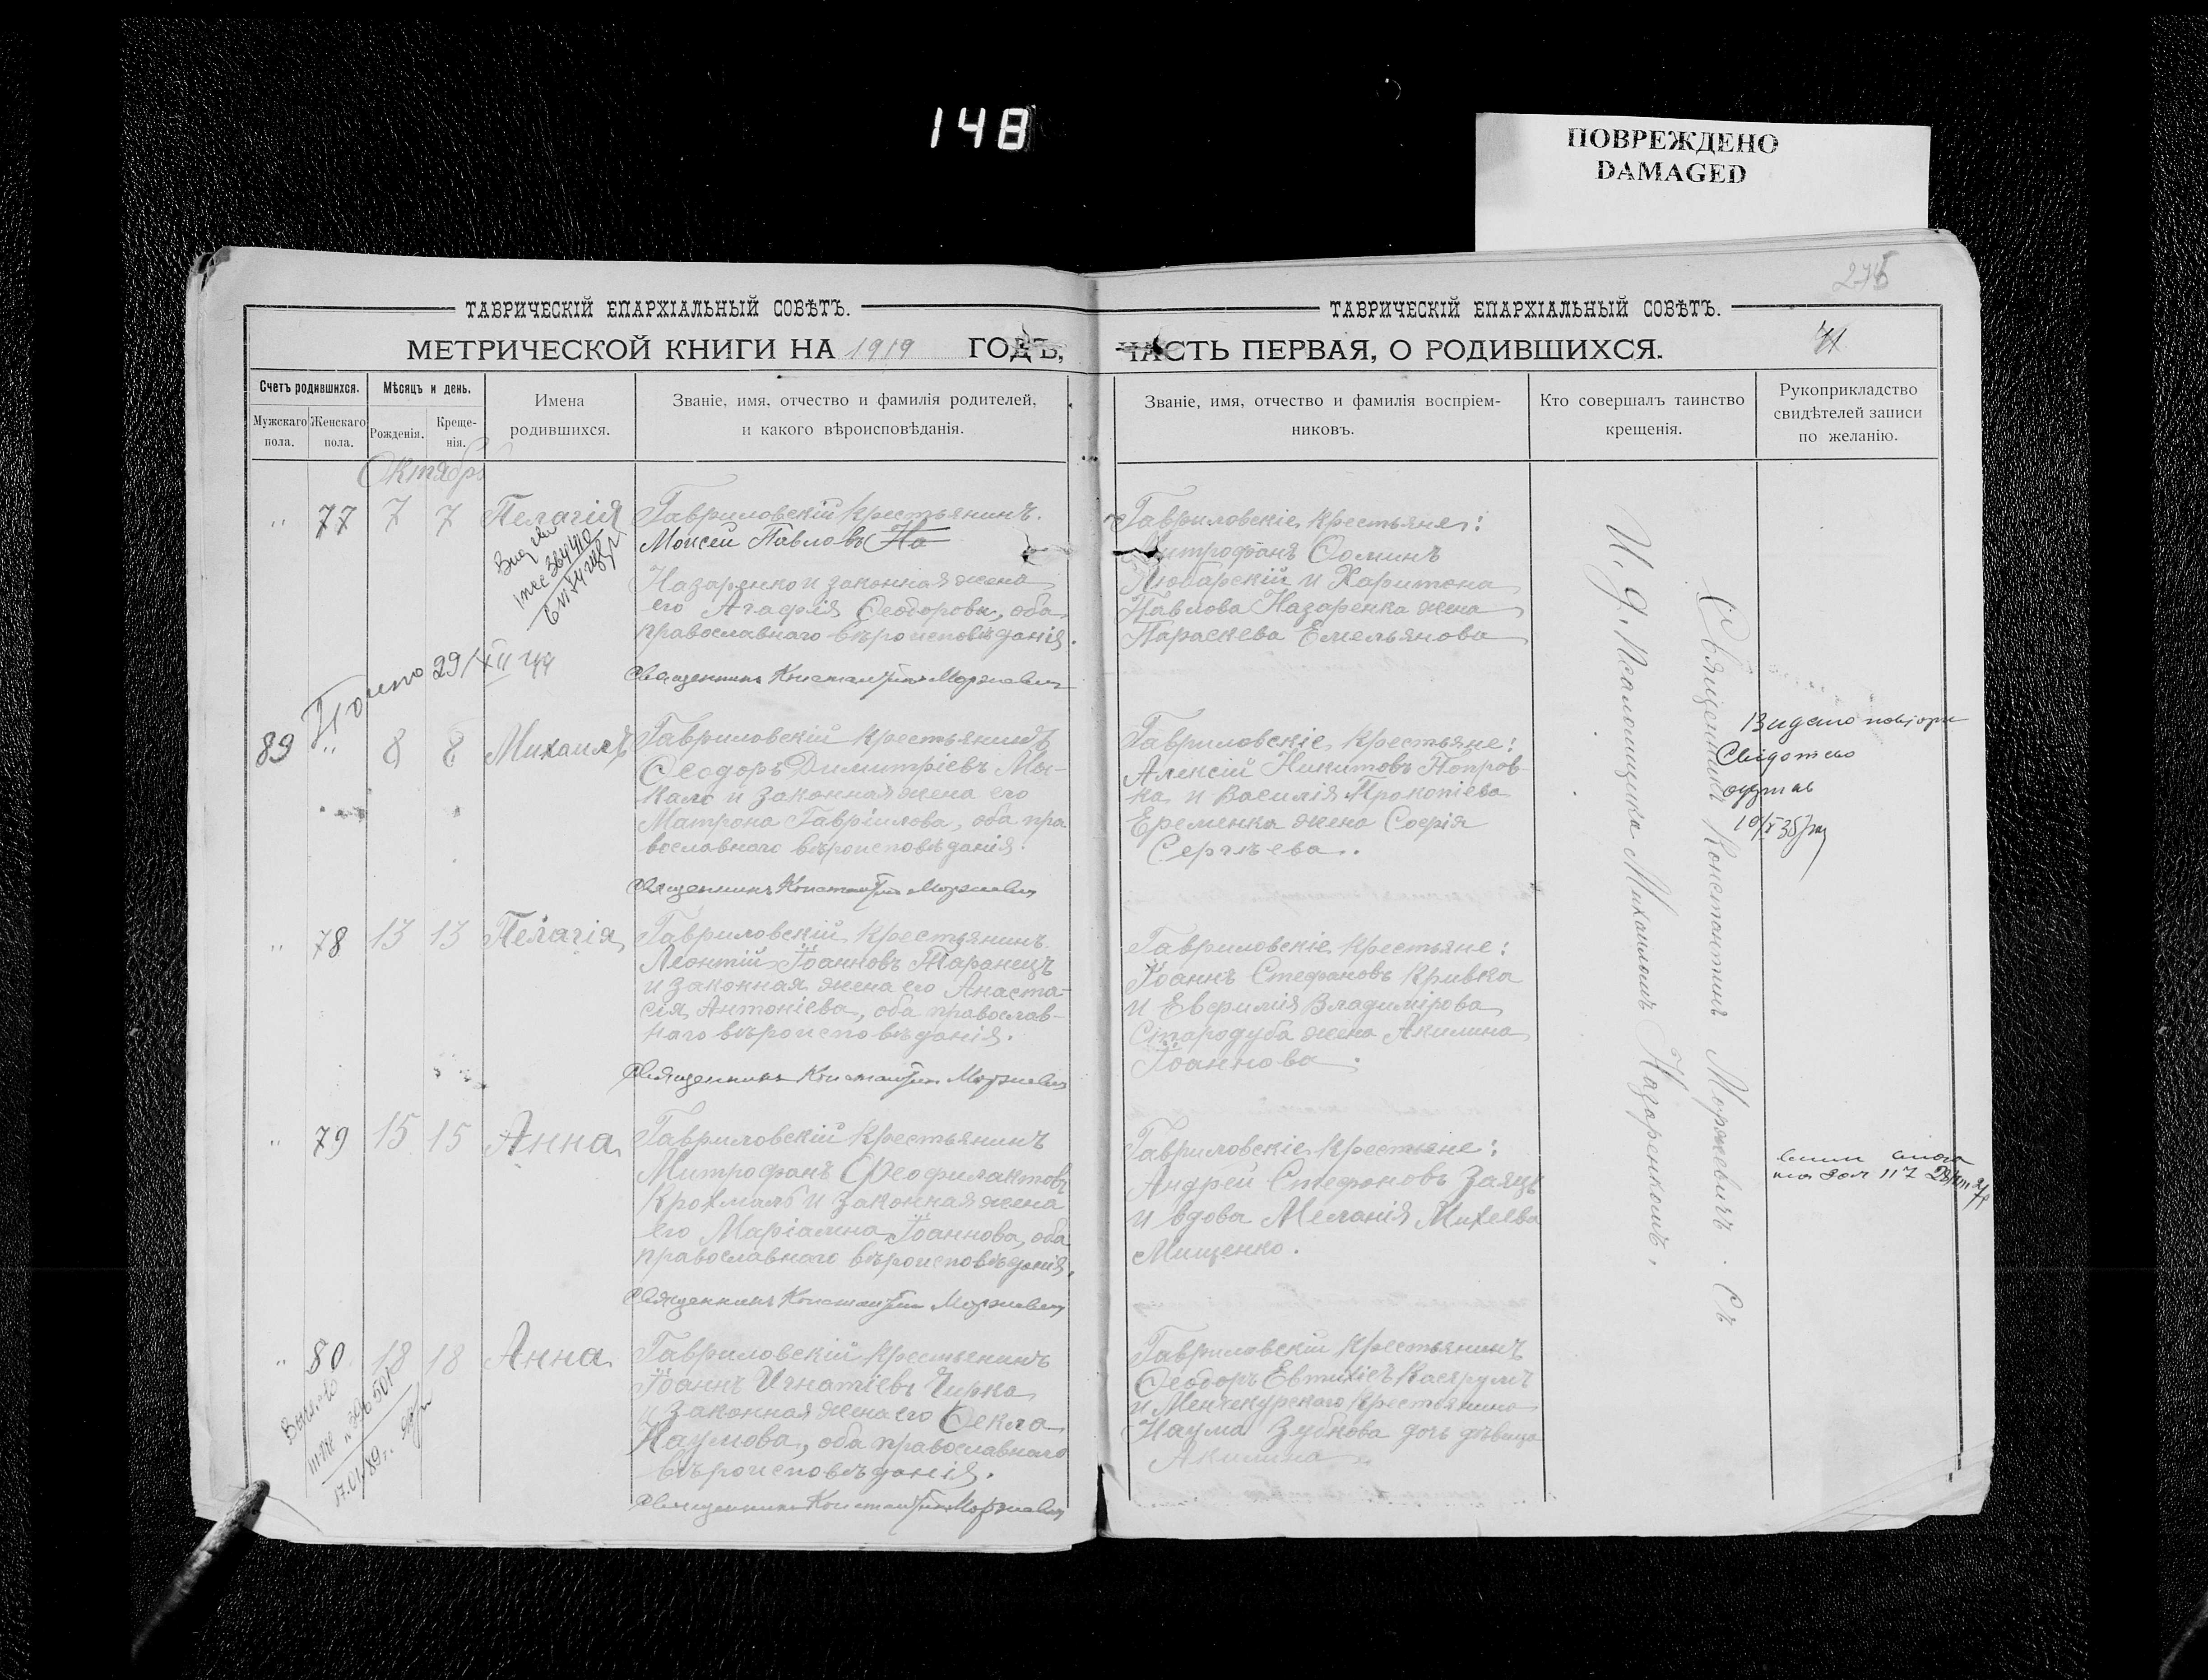 148
ПОВРЕЖДЕНО
DAMAGED
275
ТАВРИЧЕСКІЙ ЕПАРХІАЛЬНЫЙ СОВѢТЪ.
МЕТРИЧЕСКОЙ КНИГИ НА 1919 ГОДЪ,
Счетъ родившихся.
Мужскаго пола.
Женскаго пола.
Мѣсяцъ и день.
Рожденія.
Креще-
нія.
Имена
родившихся.
Званіе, имя, отчество и фамилія родителей,
и какого вѣроисповѣданія.
Октябрь
" 77 7 7 Пелагія
Гавриловскій крестьянинъ
Моисей Павловъ На
Назаренко и законная жена
его Агафія Ѳеодорова, оба
православнаго вѣроисповѣданія.
Священникъ Константинъ Моржевичъ
29/XII
89 " 8 8 Михаилъ
Гавриловскій крестьянинъ
Ѳеодоръ Димитріевъ Мы-
кало и законная жена его
Матрона Гавріилова, оба пра
вославнаго вѣроисповѣданія.
Священникъ Константинъ Моржевичъ
" 78 13 13 Пелагія
Гавриловскій крестьянинъ
Леонтій Іоанновъ Жаранецъ
и законная жена его Анаста-
сія Антоніева, оба православ-
наго вѣроисповѣданія.
Священникъ Константинъ Моржевичъ
" 79 15 15 Анна
Гавриловскій крестьянинъ
Митрофанъ Ѳеофилактовъ
Крохмаль и законная жена
его Маріамна Іоаннова, оба
православнаго вѣроисповѣданія.
Священникъ Константинъ Моржевичъ
" 80 18 18 Анна
Гавриловскій крестьянинъ
Іоаннъ Игнатіевъ Чирка
и законная жена его Ѳекла
Наумова, оба православнаго
вѣроисповѣданія.
Священникъ Константинъ Моржевичъ
ТАВРИЧЕСКІЙ ЕПАРХІАЛЬНЫЙ СОВѢТЪ.
ЧАСТЬ ПЕРВАЯ, О РОДИВШИХСЯ.
71
Званіе, имя, отчество и фамилія воспріем-
никовъ.
Кто совершалъ таинство
крещенія.
Рукоприкладство
свидѣтелей записи
по желанію.
Гавриловскіе крестьяне:
Митрофанъ Ѳоминъ
Любарскій и Харитона
Павлова Назаренка жена
Параскева Емельянова
Гавриловскіе крестьяне:
Алексій Никитовъ Попров-
ка и Василія Прокопіева
Еременка жена Софія
Сергѣева.
Гавриловскіе крестьяне:
Іоаннъ Стефановъ Кривка
и Евфимія Владимірова
Стародуба жена Акилина
Іоаннова.
Гавриловскіе крестьяне:
Андрей Стефановъ Заяцъ
и вдова Меланія Михеева
Мищенко.
Гавриловскій крестьянинъ
Ѳеодоръ Евтихіевъ
и Менчекурскаго крестьянина
Наума Зубкова дочь дѣвица
Акилина
Священникъ Константинъ Моржевичъ. Съ
И. д. Псаломщика Михаиломъ Назаренкомъ.
Видано повторн
Свідоцтво